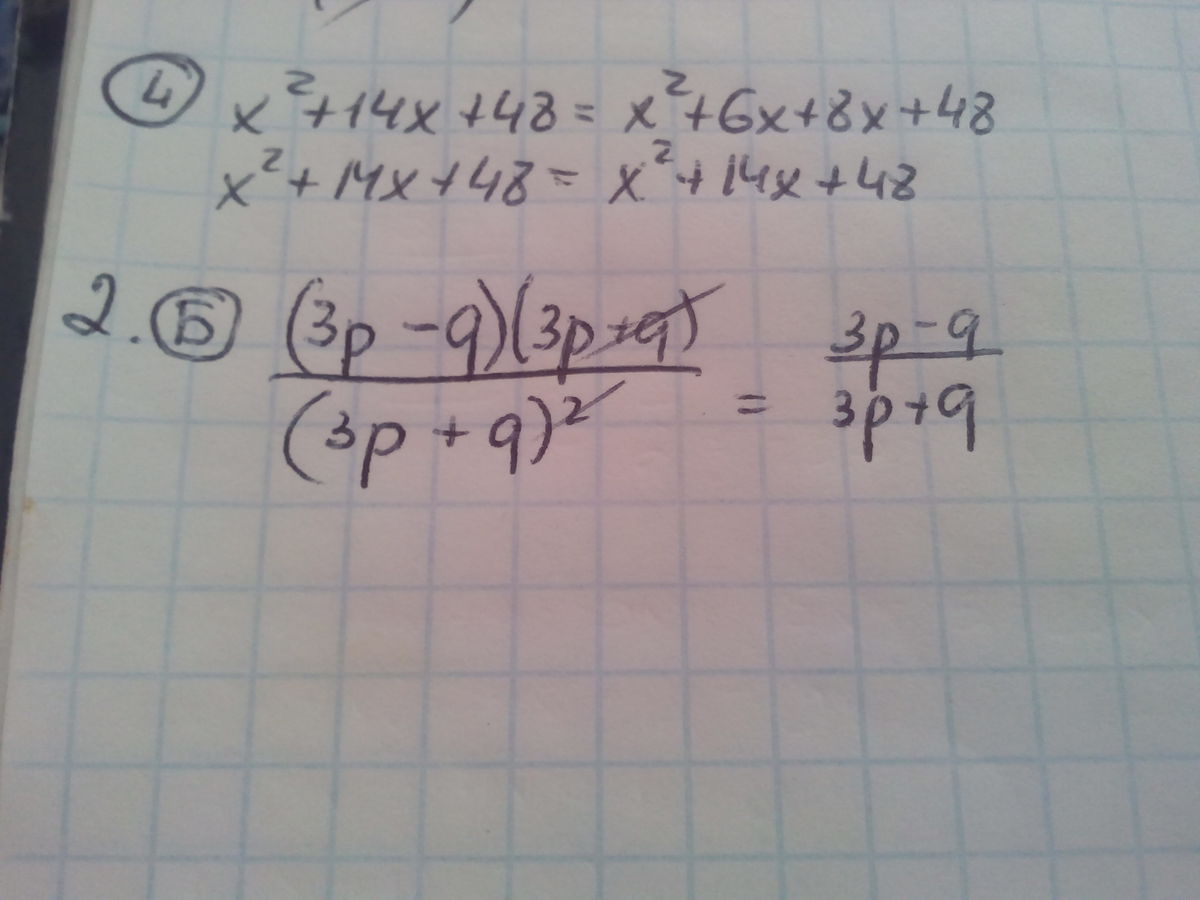 ④ x²+14x+48 = x²+6x+8x+48
x²+14x+48 = x²+14x+48
2. Б (3p-q)(3p+q) / (3p+q)² = 3p-q / 3p+q